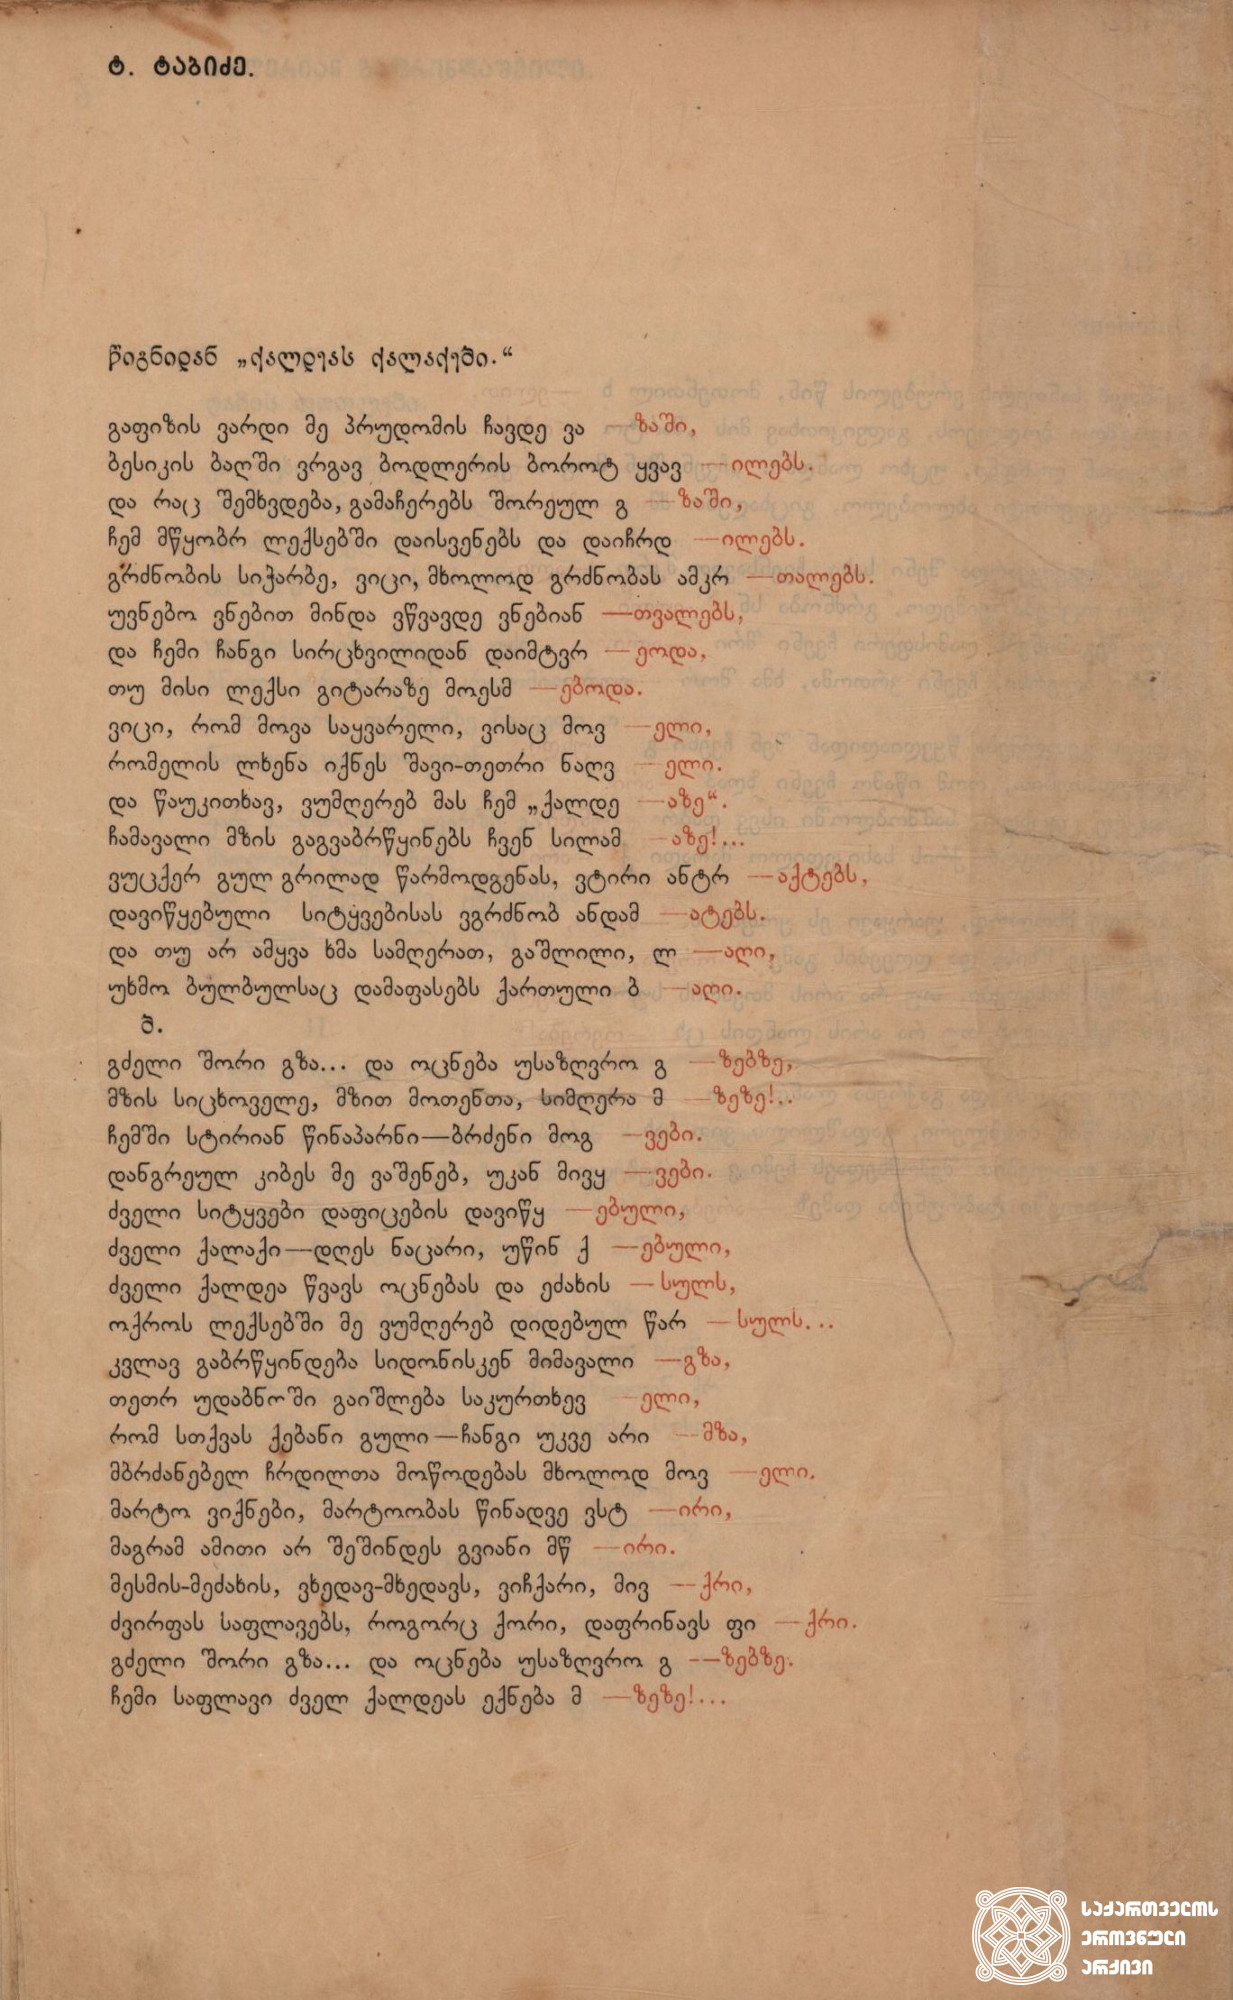 ტ. ტაბიძე.
წიგნიდან „ქალდეას ქალაქები.“
გაფიზის ვარდი მე პრუდომის ჩავდე ვა —ზაში,
ბესიკის ბაღში ვრგავ ბოდლერის ბოროტ ყვავ —ილებს.
და რაც შემხვდება, გამაჩერებს შორეულ გ —ზაში,
ჩემ მწყობრ ლექსებში დაისვენებს და დაიჩრდ —ილებს.
გრძნობის სიჭარბე, ვიცი, მხოლოდ გრძნობას ამკრ —თალებს.
უვნებო ვნებით მინდა ვწვავდე ვნებიან —თვალებს,
და ჩემი ჩანგი სირცხვილიდან დაიმტვრ —ეოდა,
თუ მისი ლექსი გიტარაზე მოესმ —ებოდა.
ვიცი, რომ მოვა საყვარელი, ვისაც მოვ —ელი,
რომელის ლხენა იქნეს შავი-თეთრი ნაღვ —ელი.
და წაუკითხავ, ვუმღერებ მას ჩემ „ქალდე —აზე“.
ჩამავალი მზის გაგვაბრწყინებს ჩვენ სილამ —აზე!...
ვუცქერ გულ გრილად წარმოდგენას, ვტირი ანტრ —აქტებს,
დავიწყებული სიტყვებისას ვგრძნობ ანდამ —ატებს.
და თუ არ ამყვა ხმა სამღერათ, გაშლილი, ლ —აღი,
უხმო ბულბულსაც დამაფასებს ქართული ბ —აღი.
მ.
გძელი შორი გზა... და ოცნება უსაზღვრო გ —ზებზე,
მზის სიცხოველე, მზით მოთენთა, სიმღერა მ —ზეზე!..
ჩემში სტირიან წინაპარნი—ბრძენი მოგ —ვები.
დანგრეულ კიბეს მე ვაშენებ, უკან მივყ —ვები.
ძველი სიტყვები დაფიცების დავიწყ —ებული,
ძველი ქალაქი—დღეს ნაცარი, უწინ ქ —ებული,
ძველი ქალდეა წვავს ოცნებას და ეძახის —სულს,
ოქროს ლექსებში მე ვუმღერებ დიდებულ წარ —სულს...
კვლავ გაბრწყინდება სიდონისკენ მიმავალი —გზა,
თეთრ უდაბნოში გაიშლება საკურთხევ —ელი,
რომ სთქვას ქებანი გული—ჩანგი უკვე არი —მზა,
მბრძანებელ ჩრდილთა მოწოდებას მხოლოდ მოვ —ელი.
მარტო ვიქნები, მარტოობას წინადვე ვსტ —ირი,
მაგრამ ამითი არ შეშინდეს გვიანი მწ —ირი.
მესმის-მეძახის, ვხედავ-მხედავს, ვიჩქარი, მივ —ქრი,
ძვირფას საფლავებს, როგორც ქორი, დაფრინავს ფი —ქრი.
გძელი შორი გზა... და ოცნება უსაზღვრო გ —ზებზე.
ჩემი საფლავი ძველ ქალდეას ექნება მ —ზეზე!...
საქართველოს
ეროვნული
არქივი